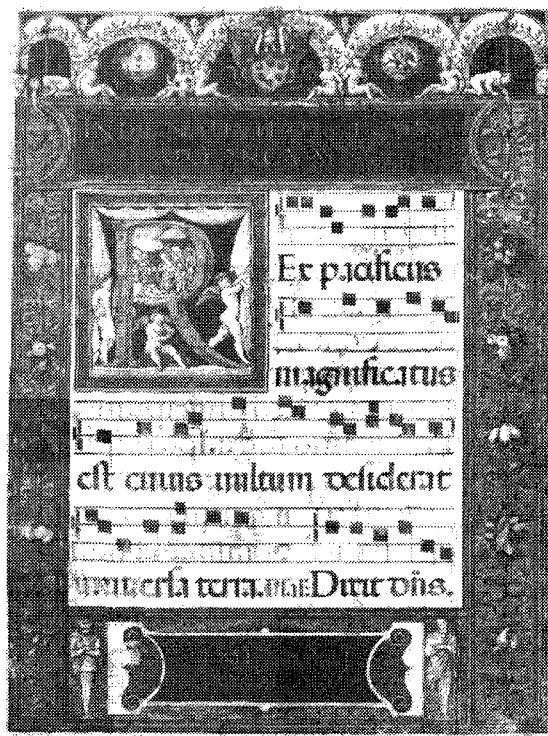 REx pacificus
magnificatus
est cuius uultum desiderat
uniuersa terra. Dixit dñs.